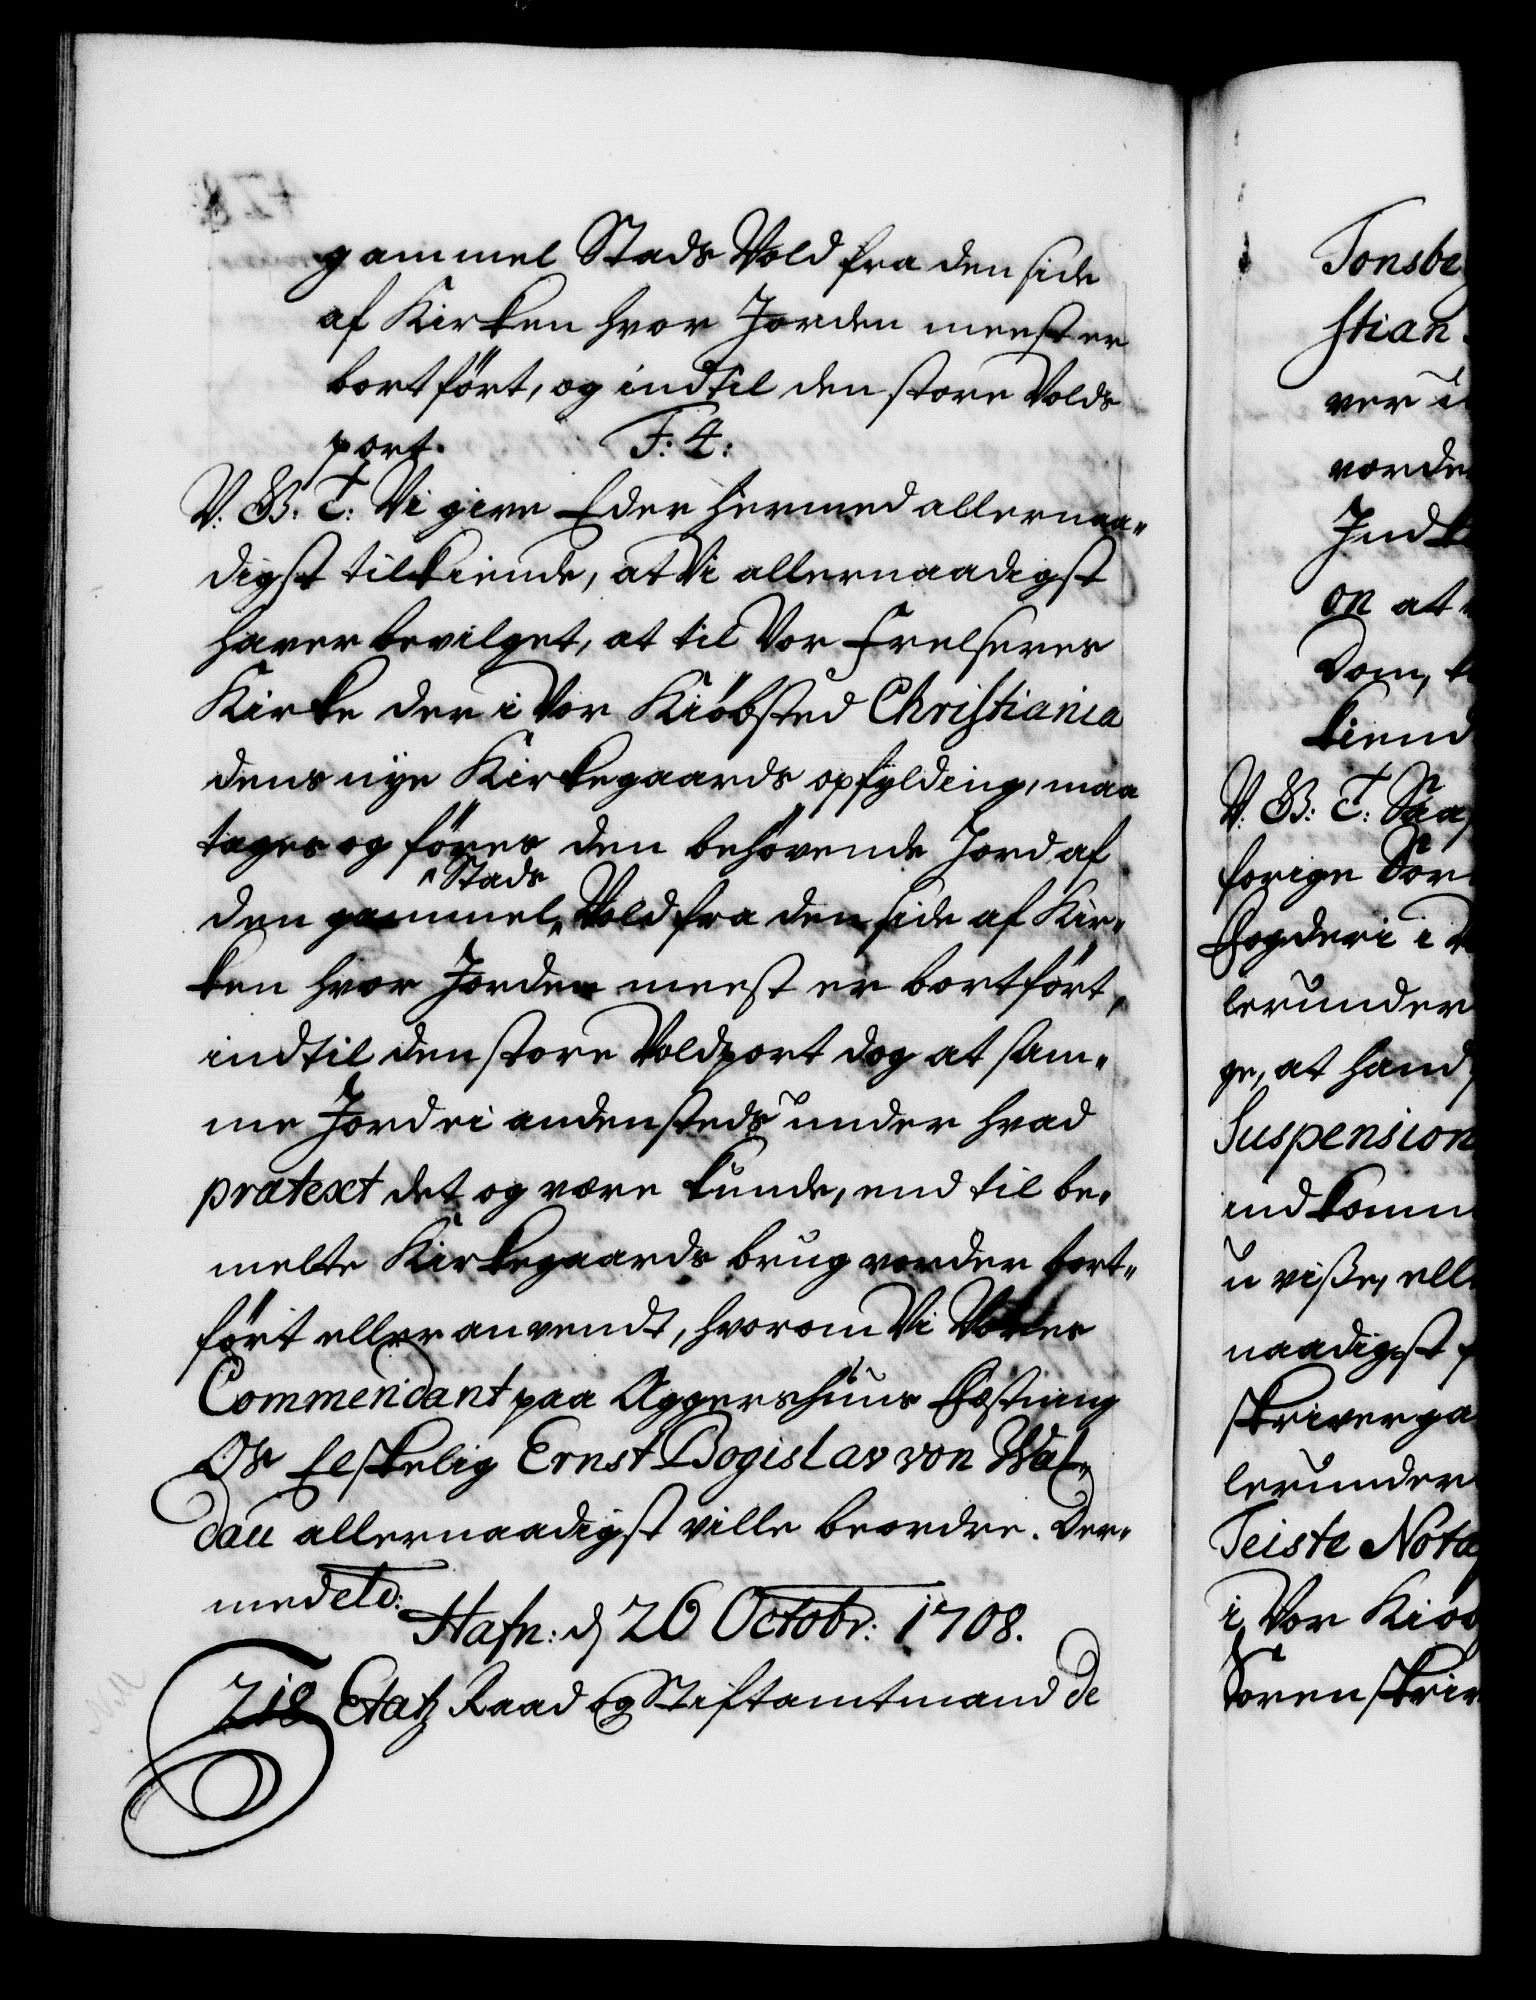 gammel Stads Vold fra den side
af Kirken hvor Jorden meest er
bortført, og indtil den store Volds
port. F: 4:
V: G: T: Vi give Eder hermed allernaa„
digst tilkiende, at Vi allernaadigst
haver bevilget, at til Vor Frelseres
Kirke der i Vor Kiøbsted Christiania
dens nye Kirkegaards opfylding, maa
tages og føres den behøvende Jord af
Stads
den gammel Vold fra den side af Kir„
ken hvor Jorden meest er bortført,
indtil den store Voldport dog at sam„
me Jord ei andensteds under hvad
prætext det og være kunde, end til be„
melte Kirkegaards brug vorder bort„
ført eller anvendt, hvorom Vi Vores
Commendant paa Aggershuus Fæstning
Os Elskelig Ernst Bogislav von Wal„
dau allernaadigst ville beordre. Der„
med etc:
Hafn: d 26 Octobr: 1708.
218 Etatz Raad og Stiftamtmand de
Tonsbe
stian
ver i
vorde
Indk
on at
Dom, k
kiend
V: G: T: Saa
forige Sor
Fogderi i
lerunder
ge, at hand
Suspension
indkomm
u visse, ell
naadigst
skriver ga
lerunder
Teiste Nota
i Vor Kiøb
Sorenskriv